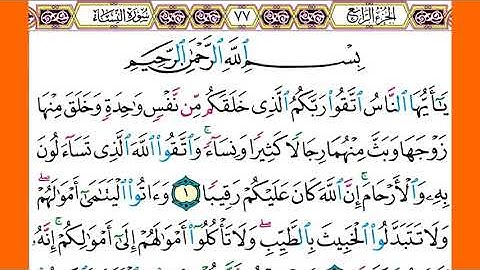 سورة النساء ٧٧ الجزء الرابع
بِسْمِ ٱللَّهِ ٱلرَّحْمَٰنِ ٱلرَّحِيمِ
يَٰٓأَيُّهَا ٱلنَّاسُ ٱتَّقُوا۟ رَبَّكُمُ ٱلَّذِى خَلَقَكُم مِّن نَّفْسٍ وَٰحِدَةٍ وَخَلَقَ مِنْهَا
زَوْجَهَا وَبَثَّ مِنْهُمَا رِجَالًا كَثِيرًا وَنِسَآءً ۚ وَٱتَّقُوا۟ ٱللَّهَ ٱلَّذِى تَسَآءَلُونَ
بِهِۦ وَٱلْأَرْحَامَ ۚ إِنَّ ٱللَّهَ كَانَ عَلَيْكُمْ رَقِيبًا ١ وَءَاتُوا۟ ٱلْيَتَٰمَىٰٓ أَمْوَٰلَهُمْ ۖ
وَلَا تَتَبَدَّلُوا۟ ٱلْخَبِيثَ بِٱلطَّيِّبِ ۖ وَلَا تَأْكُلُوٓا۟ أَمْوَٰلَهُمْ إِلَىٰٓ أَمْوَٰلِكُمْ ۚ إِنَّهُۥ